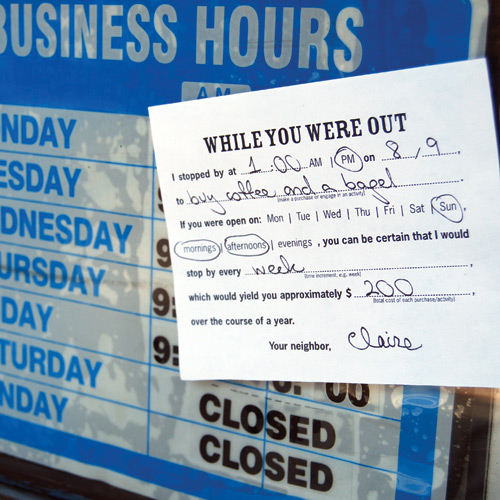 BUSINESS HOURS
AM
NDAY
ESDAY
DNESDAY 9
URSDAY 9:
DAY 9:
TURDAY 9: 00
NDAY CLOSED
CLOSED
WHILE YOU WERE OUT
I stopped by at 1:00 AM | PM on 8/9,
to buy coffee and a bagel.
(make a purchase or engage in an activity)
If you were open on: Mon | Tue | Wed | Thu | Fri | Sat | Sun,
mornings | afternoons | evenings, you can be certain that I would
stop by every week,
(time increment, e.g. week)
which would yield you approximately $ 200,
(total cost of each purchase/activity)
over the course of a year.
Your neighbor, Claire